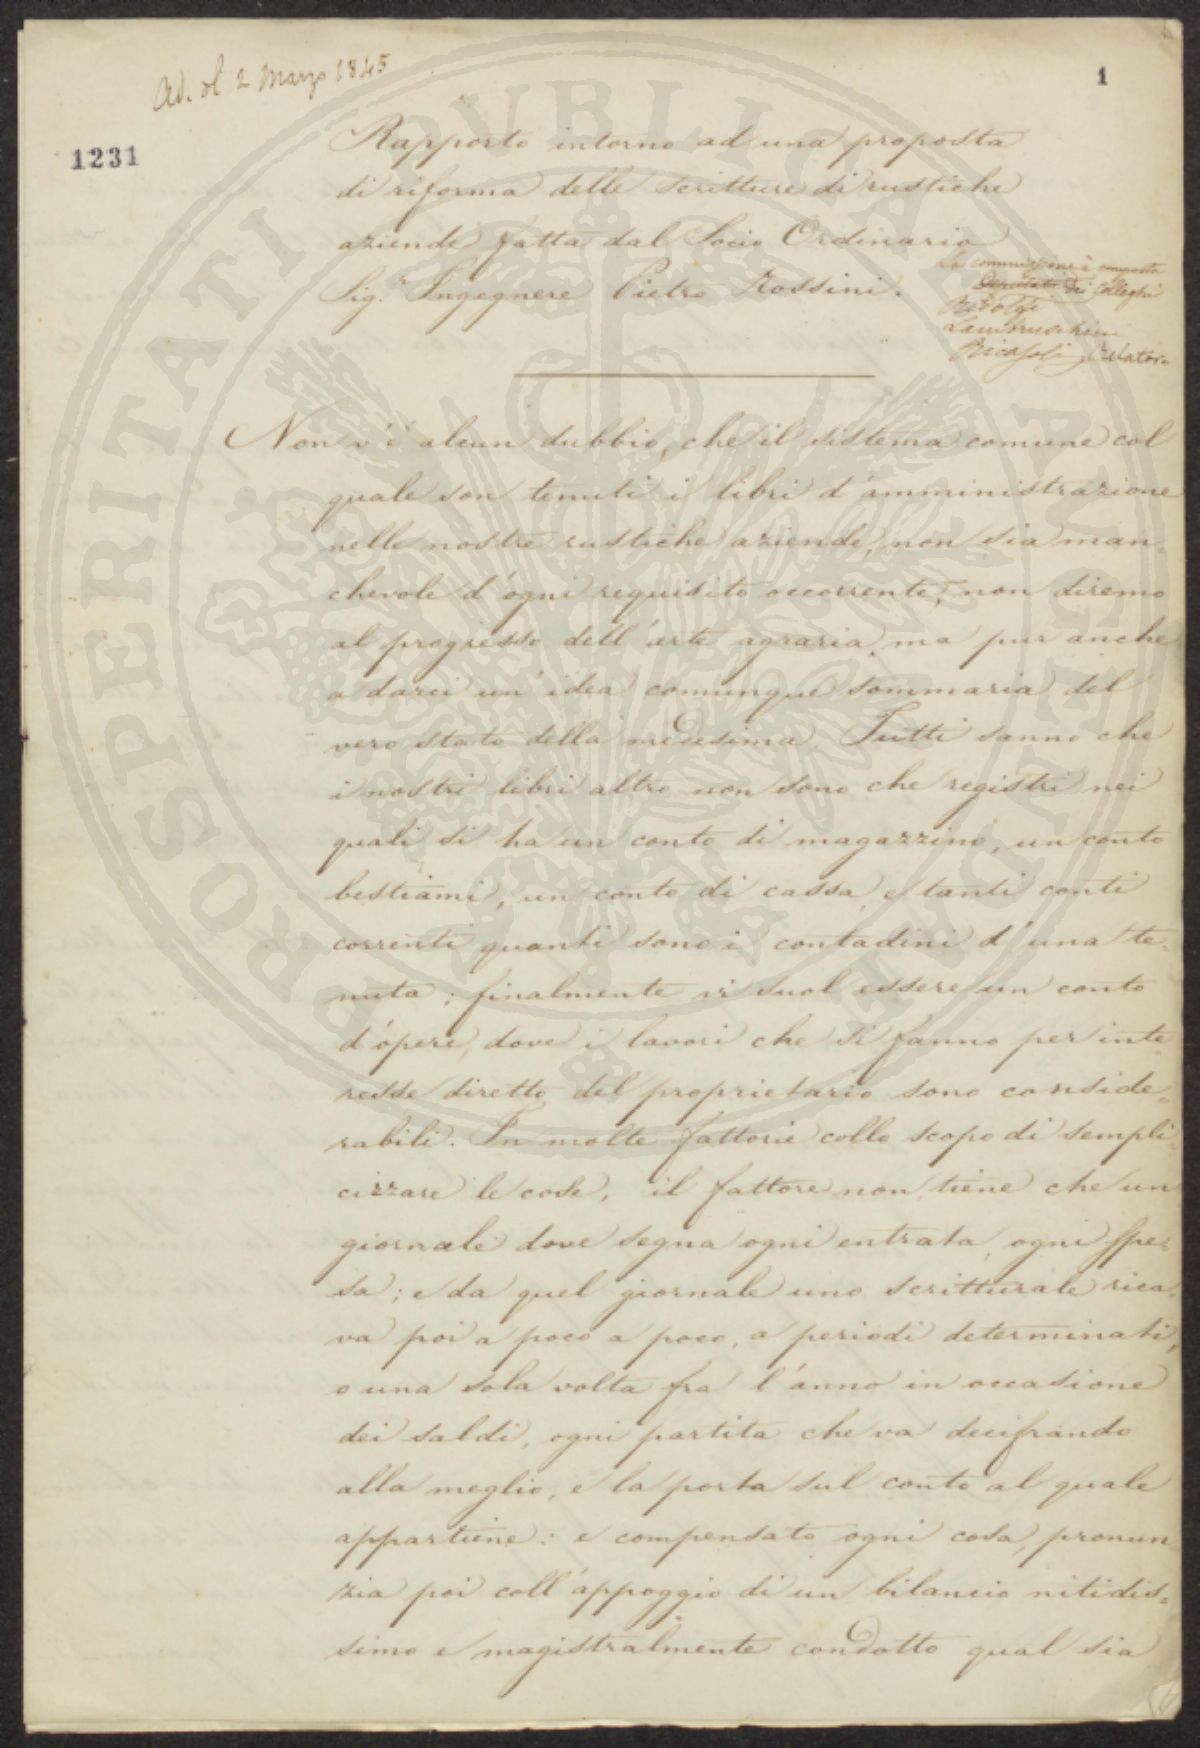 Ad. del 2 Marzo 1845
1
1231
Rapporto intorno ad una proposta
di riforma delle scritture di rustiche
aziende fatta dal Socio Ordinario
Sig.r Ingegnere Pietro Rossini.
La commissione è composta
Deputati Dei Colleghi
Ridolfi
Lambruschini
Ricasoli, relatore
Non v'è alcun dubbio, che il sistema comune col
quale son tenuti i libri d'amministrazione
nelle nostre rustiche aziende, non sia man-
chevole d'ogni requisito occorrente, non diremo
al progresso dell'arte agraria, ma pur anche
a darci un'idea comunque sommaria del
vero stato della medesima. Tutti sanno che
i nostri libri altro non sono che registri nei
quali si ha un conto di magazzino, un conto
bestiami, un conto di cassa, e tanti conti
correnti quanti sono i contadini d'una te-
nuta; finalmente vi suol essere un conto
d'opere, dove i lavori che si fanno per inte
resse diretto del proprietario sono conside-
rabili. In molte fattorie collo scopo di sempli-
cizzare le cose, il fattore non tiene che un
giornale dove segna ogni entrata, ogni spe-
sa; e da quel giornale uno scritturale rica-
va poi a poco a poco, a periodi determinati,
o una sola volta fra l'anno in occasione
dei saldi, ogni partita che va decifrando
alla meglio, e la porta sul conto al quale
appartiene: e compensato ogni cosa, pronun
zia poi coll'appoggio di un bilancio nitidis-
simo e magistralmente condotto qual sia
PROSPERITATI PUBLICAE AUGENDAE